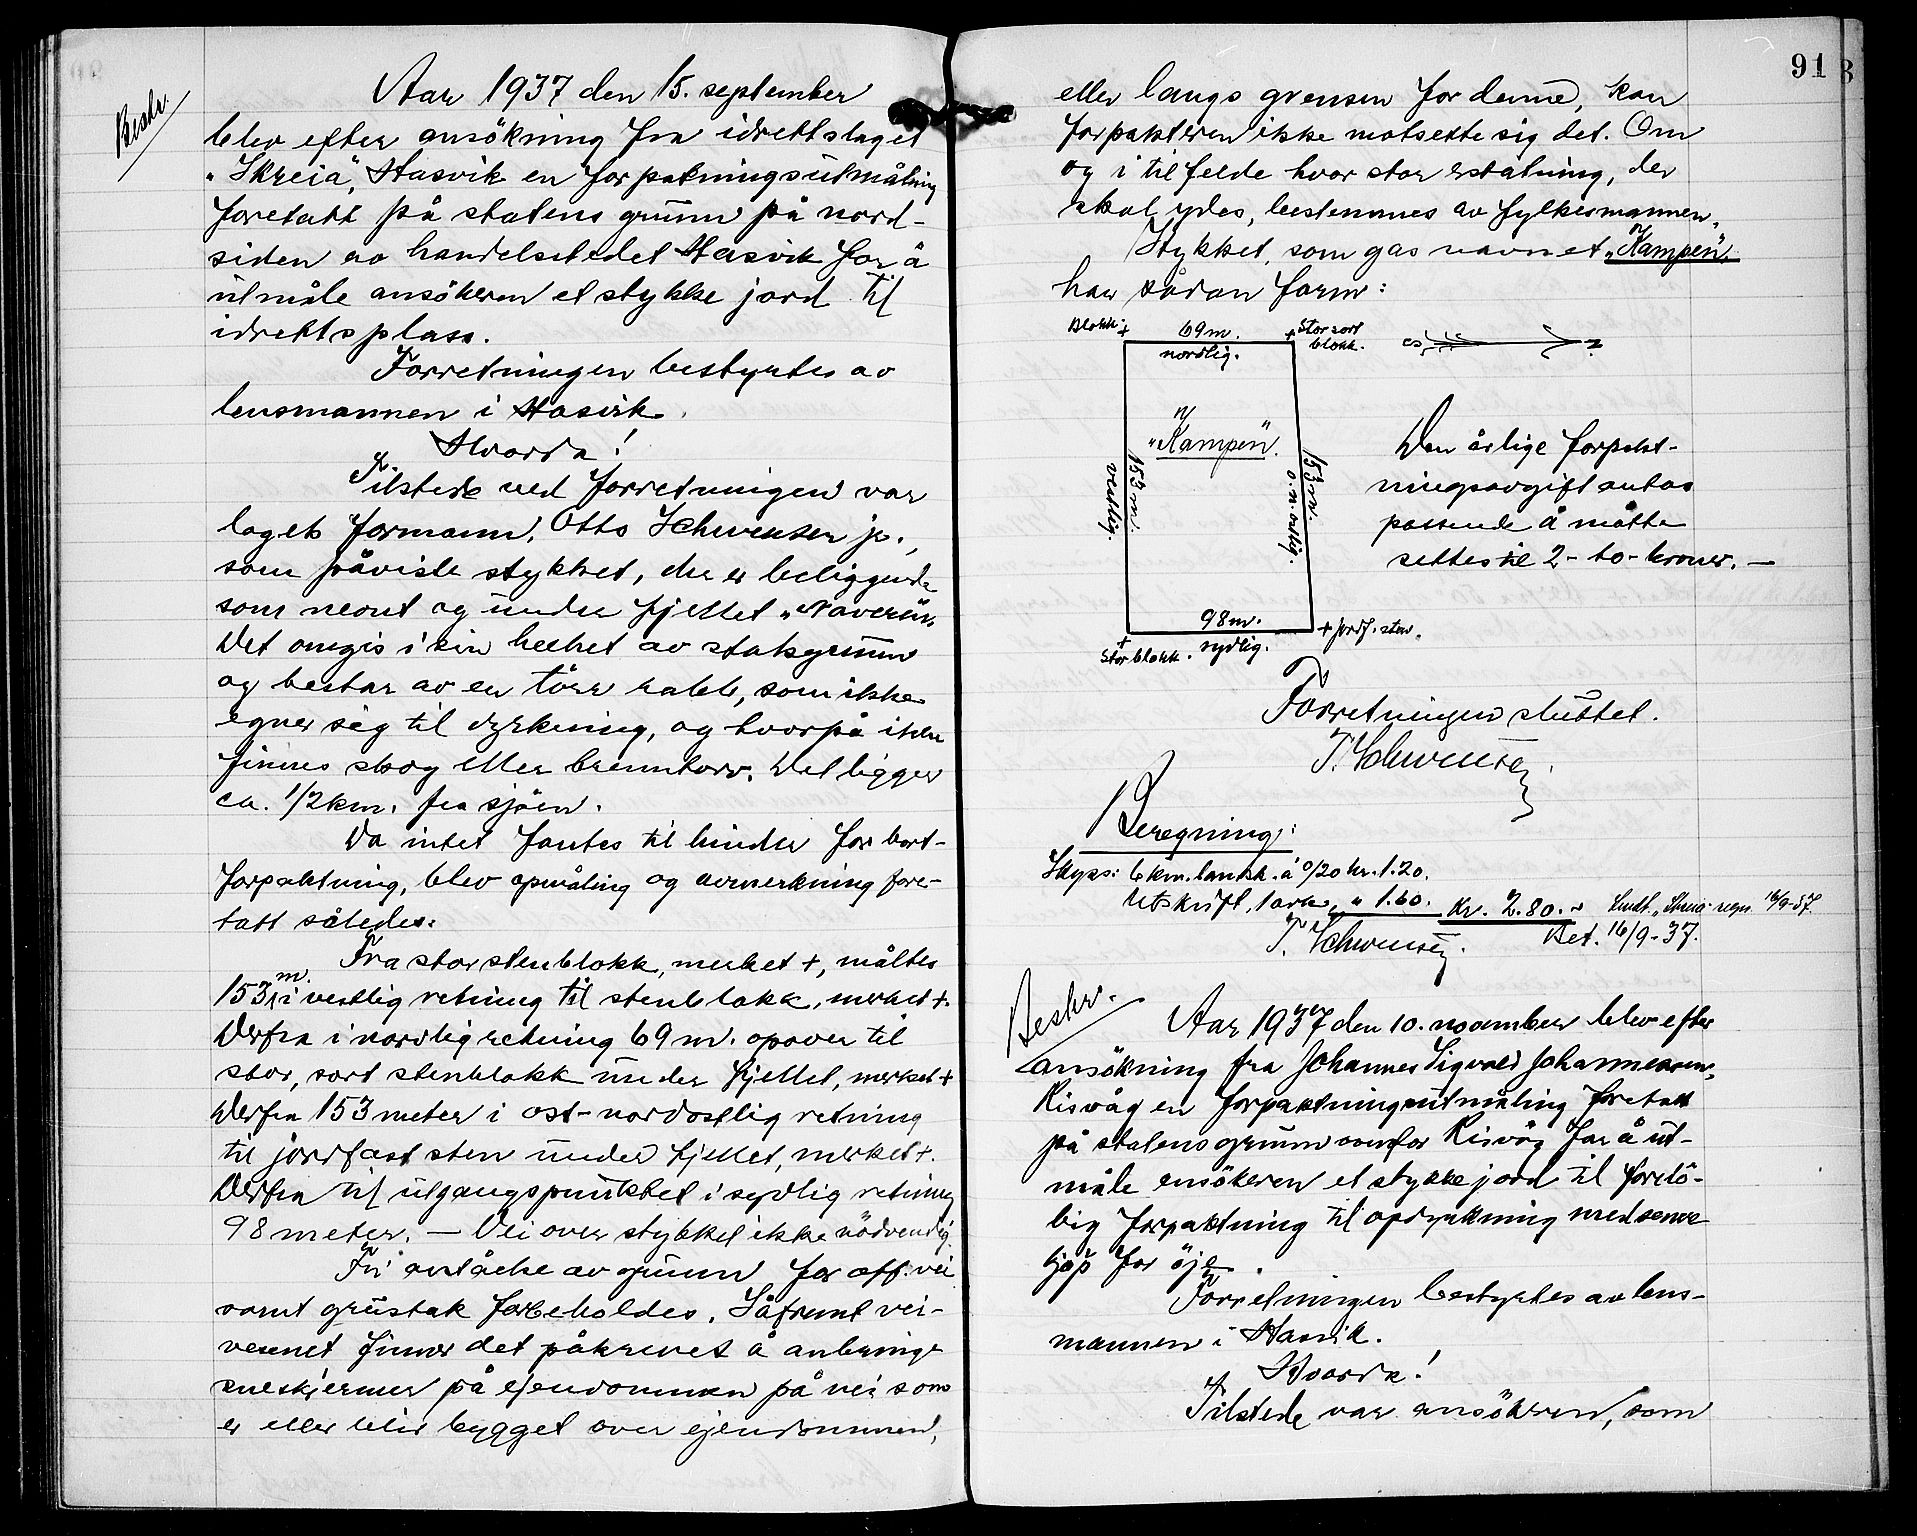 Beskr.
Aar 1937 den 15. september
blev efter ansökning fra idrettslaget
"Skreia", Hasvik en forpaktningsutmåling
foretatt på statens grunn på nord-
siden av handelsstedet Hasvik for å
utmåle ansökeren et stykke jord til
idrettsplass.
Forretningen bestyrtes av
lensmannen i Hasvik.
Hvorda!
Tilstede ved forretningen var
lagets formann, Otto Schwensen jr.,
som påviste stykket, der er beliggende
som neont og under fjellet "Naveren".
Det omgis i sin helhet av statsgrunn
og bestar av en törr rabb, som ikke
egner seg til dyrkning, og hvorpå ikke
finnes skog eller brenntorv. Det ligger
ca. 1/2 km. fra sjöen.
Da intet fantes til hinder for bort-
forpaktning, blev opmåling og avmerkning fore-
tatt således:
Fra stor stenblokk, merket +, måltes
153 m. i vestlig retning til stenblokk, merket +.
Derfra i nordlig retning 69 m. opover til
stor, sort stenblokk under fjellet, merket +
Derfra 153 meter i ost-nordostlig retning
til jordfast sten under fjellet, merket +.
Derfra til utgangspunktet i sydlig retning
98 meter. — Vei over stykket ikke nödvendig.
Fri avståelse av grunn for off. vei
samt grustak forbeholdes. Såfremt vei-
vesenet finner det påkrevet å anbringe
sneskjermer på ejendommen på vei som
er eller blir bygget over ejendommen,
91
eller langs grensen for denne, kan
forpakteren ikke motsette sig det. Om
og i tilfelde hvor stor erstatning, der
skal ydes, bestemmes av fylkesmannen.
Stykket, som gas navnet "Kampen",
har sådan form:
Blokk +
69 m.
nordlig.
+ Stor sort
blokk.
S
N
"Kampen".
153 m.
vestlig.
153 m.
o.n.ostlig.
98 m.
sydlig.
+
Stor blokk.
+ jordf. sten.
Den årlige forpakt-
ningsavgift antas
passende å måtte
settes til 2 - to - kroner. —
Forretningen sluttet.
T. Schwensen.
Beregning:
Skyss: 6 km. landsk. à 0/20 kr. 1.20.
Utskrift, 1 ark, " 1.60. Kr. 2.80.
Sendt "Skreia" regn. 16/9-37.
T. Schwensen. Bet. 16/9-37.
Beskr.
Aar 1937 den 10. november blev efter
ansökning fra Johannes Sigvald Johannessen,
Risvåg en forpaktningsutmåling foretatt
på statens grunn ovenfor Risvåg for å ut-
måle ansökeren et stykke jord til forelö-
big forpaktning til opdyrkning med senere
kjöp for öje.
Forretningen bestyrtes av lens-
mannen i Hasvik.
Hvorda!
Tilstede var ansökeren, som